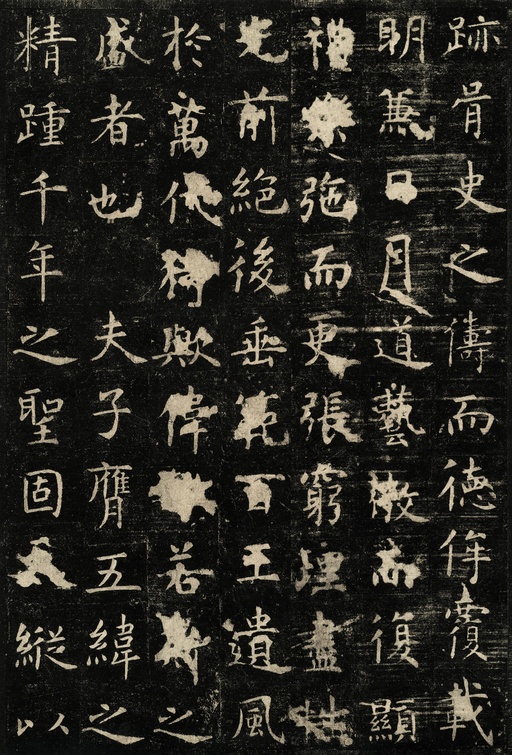 跡胥史之儔而德侔覆載
明兼日月道藝微而復顯
禮弛而更張窮理盡
光前絕後垂範百王遺風
於萬代猗歟偉若之
盛者也夫子膺五緯之
精踵千年之聖固天縱以